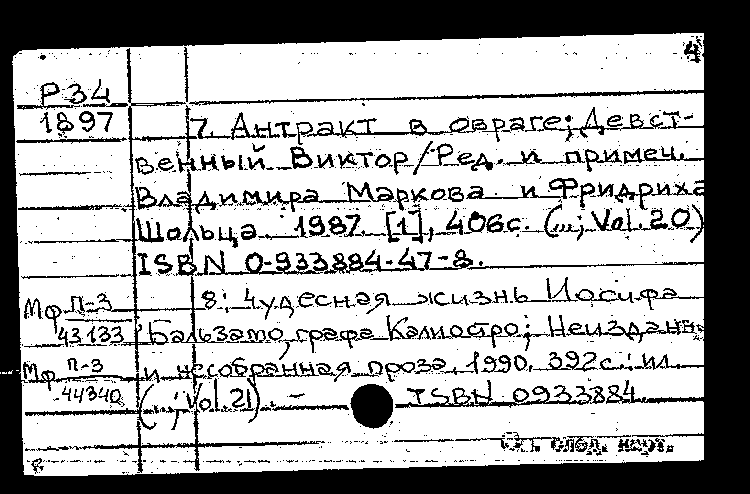 4
Р34
1897
7. Антракт в овраге; Девст-
венный Виктор/Ред. и примеч.
Владимира Маркова и Фридриха
Шольца. 1987. [1], 406с. (...; Vol. 20)
ISBN 0-933884-47-8.
Мф П-3 43133
8: Чудесная жизнь Иосифа
Бальзамо, графа Калиостро; Неизданн.
Мф П-3 44340
и несобранная проза. 1990. 392с.: ил.
(...; Vol. 21). - ISBN 0933884
См. след. карт.